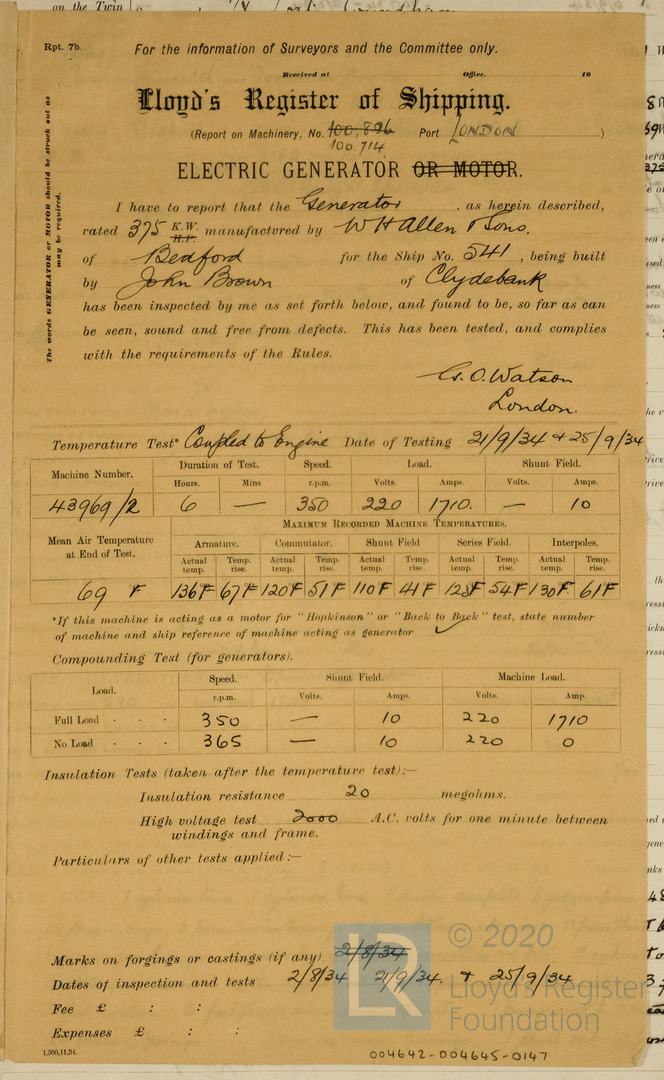 on the Twin
Rpt. 7b.
For the information of Surveyors and the Committee only.
Received at Office. 19
Lloyd's Register of Shipping.
(Report on Machinery, No. 100,896 Port LONDON )
100.714
ELECTRIC GENERATOR OR MOTOR.
The words GENERATOR or MOTOR should be struck out as
may be required.
I have to report that the Generator, as herein described,
rated 375 K.W. H.P. manufactured by W H Allen & Sons.
of Bedford for the Ship No. 541, being built
by John Brown of Clydebank
has been inspected by me as set forth below, and found to be, so far as can
be seen, sound and free from defects. This has been tested, and complies
with the requirements of the Rules.
G. O. Watson
London.
Temperature Test* Coupled to Engine Date of Testing 21/9/34 & 25/9/34
Machine Number. Duration of Test. Speed. Load. Shunt Field.
Hours. Mins r.p.m. Volts. Amps. Volts. Amps.
43969/2 6 — 350 220 1710. — 10
Mean Air Temperature at End of Test. MAXIMUM RECORDED MACHINE TEMPERATURES.
Armature. Commutator. Shunt Field Series Field. Interpoles.
Actual temp. Temp. rise. Actual temp. Temp. rise. Actual temp. Temp. rise. Actual temp. Temp. rise. Actual temp. Temp. rise.
69 F 136°F 67F 120F 51F 110F 41F 123F 54F 130F 61F
*If this machine is acting as a motor for "Hopkinson" or "Back to Back" test, state number
of machine and ship reference of machine acting as generator
Compounding Test (for generators).
Load. Speed. Shunt Field. Machine Load.
r.p.m. Volts. Amps. Volts. Amp.
Full Load - - - 350 — 10 220 1710
No Load - - - 365 — 10 220 0
Insulation Tests (taken after the temperature test):—
Insulation resistance 20 megohms.
High voltage test 2000 A.C. volts for one minute between
windings and frame.
Particulars of other tests applied:—
Marks on forgings or castings (if any) 2/8/34
Dates of inspection and tests 2/8/34 21/9/34. & 25/9/34
Fee £ : :
Expenses £ : :
1,500,11,34.
LR
© 2020
Lloyd's Register
Foundation
004642-004645-0147